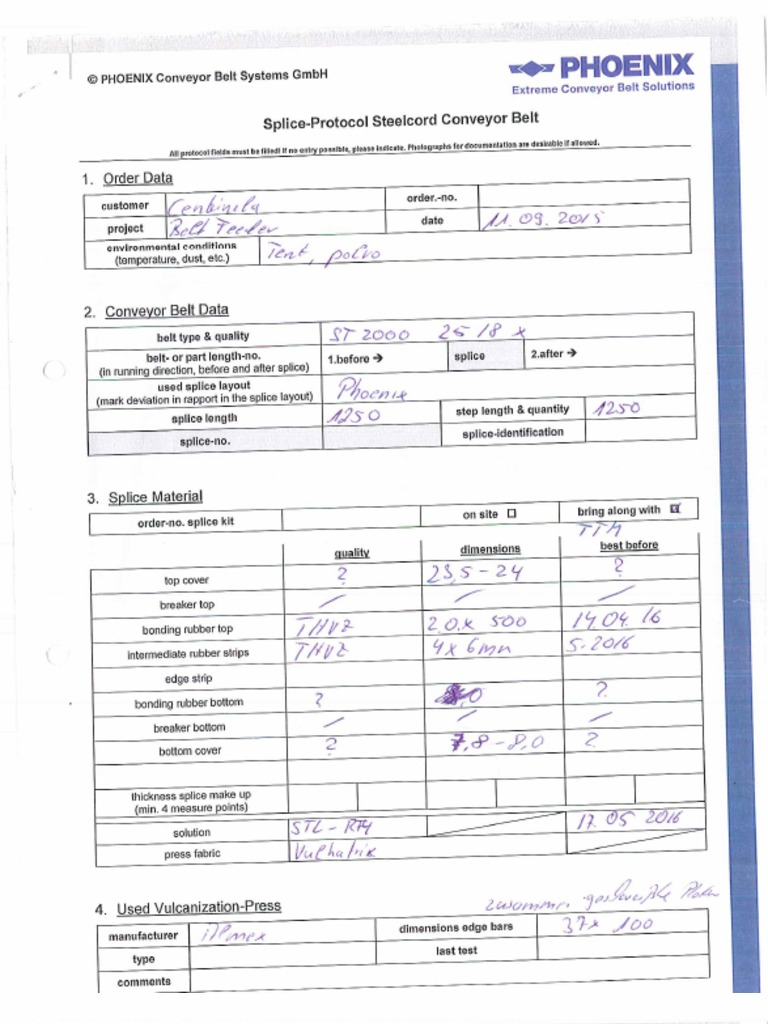 © PHOENIX Conveyor Belt Systems GmbH
PHOENIX
Extreme Conveyor Belt Solutions
Splice-Protocol Steelcord Conveyor Belt
All protocol fields must be filled! If no entry possible, please indicate. Photographs for documentation are desirable if allowed.
1. Order Data
customer Centinela order.-no.
project Belt Feeder date 11.09.2015
environmental conditions
(temperature, dust, etc.) Tent, polvo
2. Conveyor Belt Data
belt type & quality ST 2000 25/8 x
belt- or part length-no.
(in running direction, before and after splice) 1.before → splice 2.after →
used splice layout
(mark deviation in rapport in the splice layout) Phoenix
splice length 1250 step length & quantity 1250
splice-no. splice-identification
3. Splice Material
order-no. splice kit on site ☐ bring along with ☑
TTM
quality dimensions best before
top cover ? 23,5 - 24 ?
breaker top / / /
bonding rubber top THVZ 2.0 x 500 14.04.16
intermediate rubber strips THVZ 4 x 6mm 5.2016
edge strip
bonding rubber bottom ? 8,0 ?
breaker bottom / / /
bottom cover ? 7,8 - 8,0 ?
thickness splice make up
(min. 4 measure points)
solution STL - RF4 17.05 2016
press fabric
4. Used Vulcanization-Press
manufacturer dimensions edge bars 37 x 100
type last test
comments